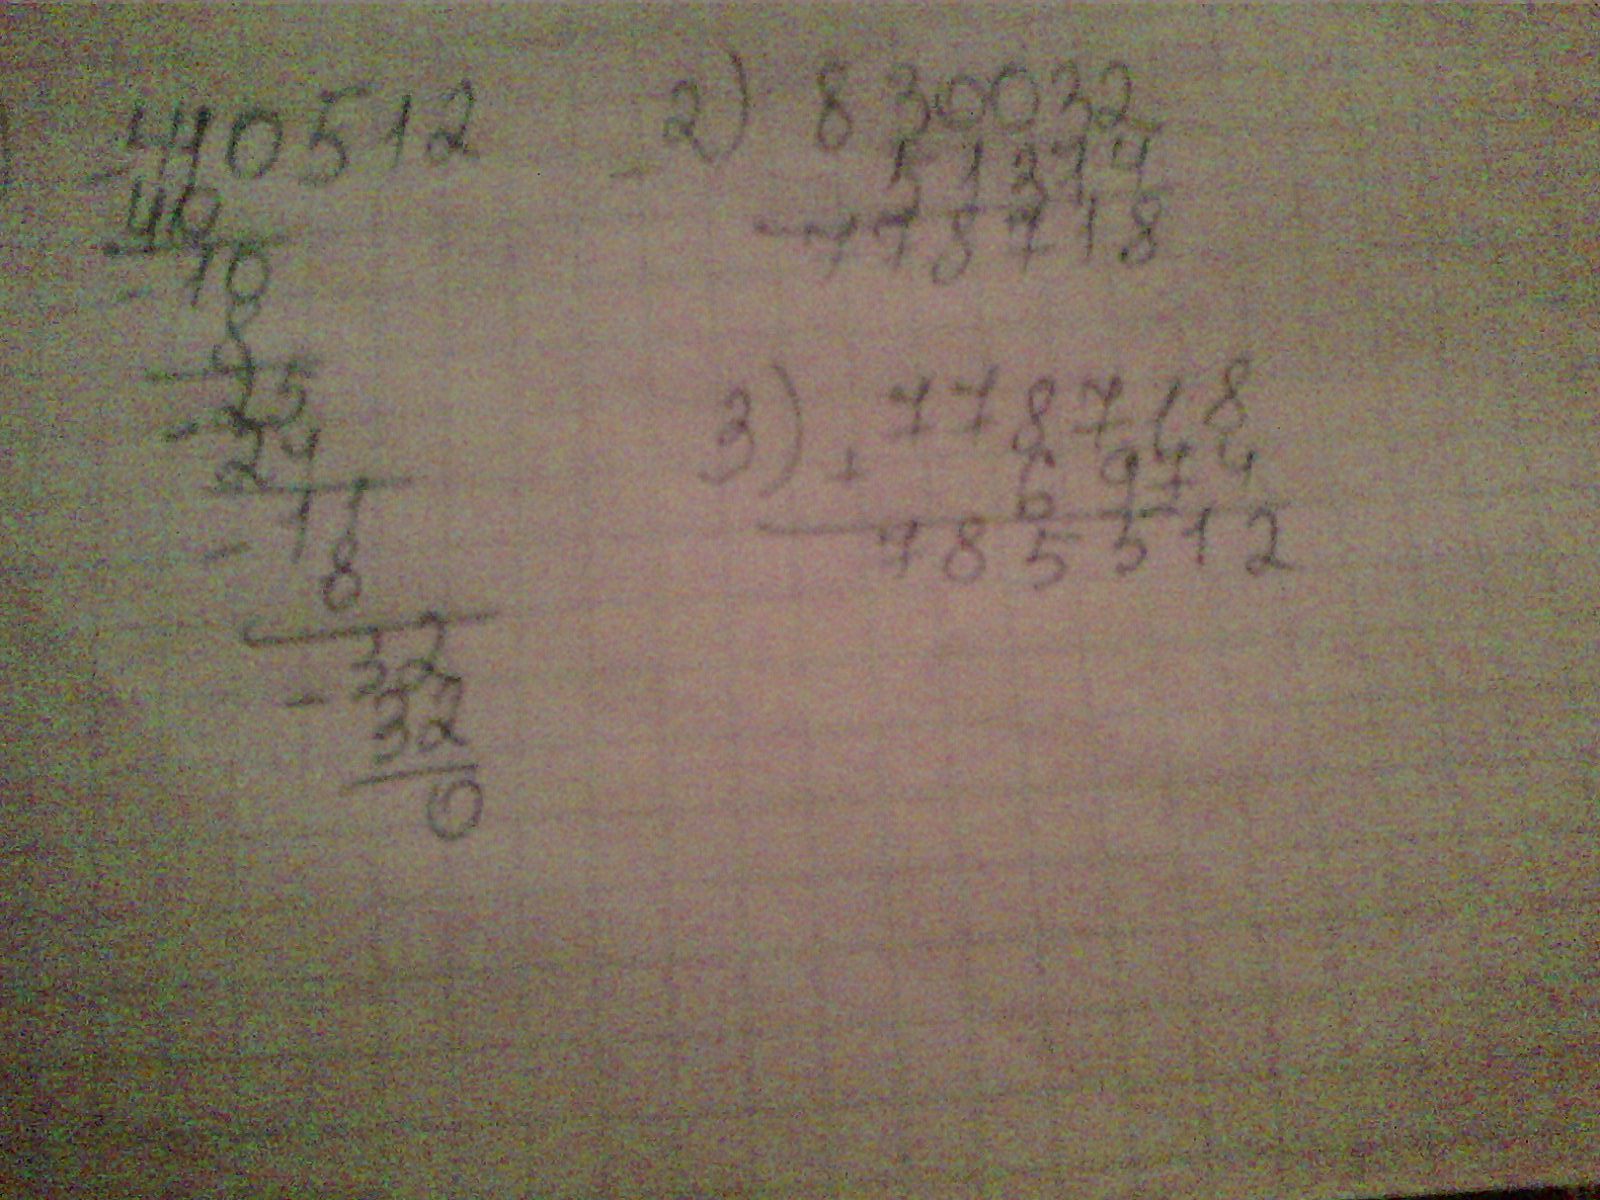 - 410512
40
- 10
8
- 25
24
- 11
8
- 32
32
0
- 2) 830032
51314
778718
3) + 778718
6974
785512